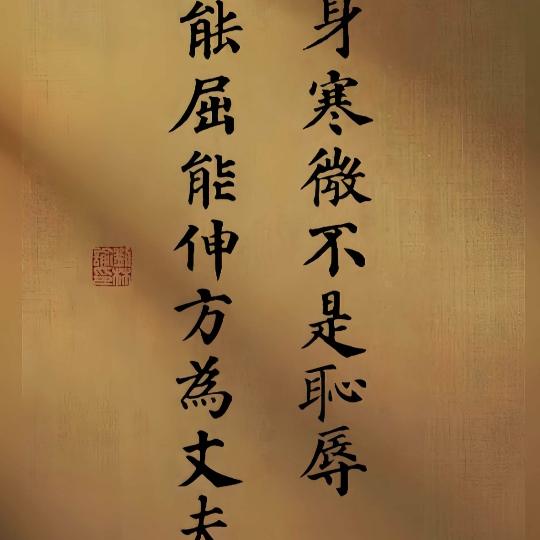 身寒微不是恥辱
能屈能伸方為丈夫